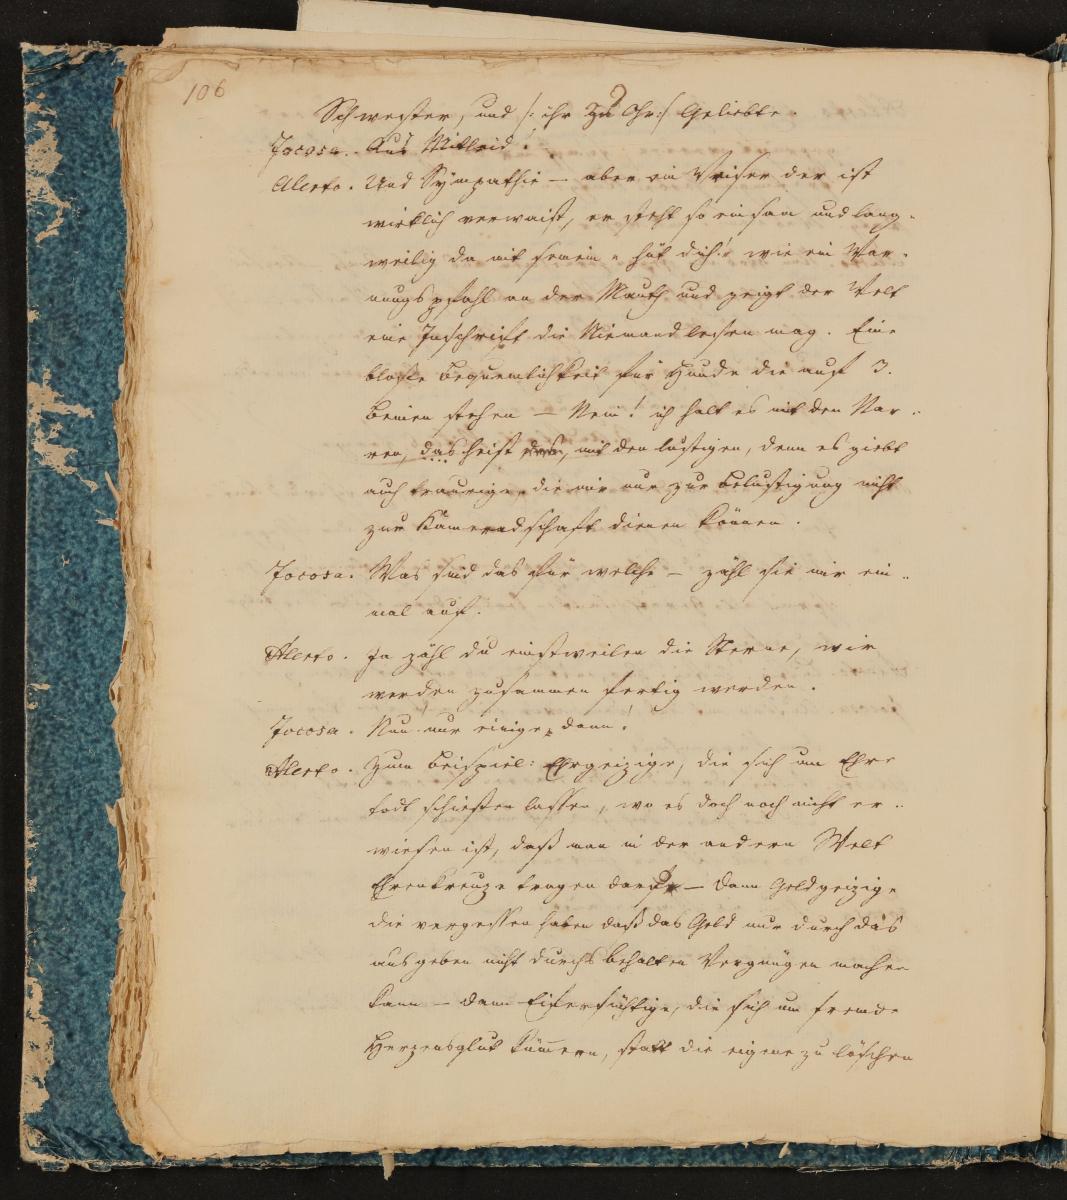 106
Schwester, und /: ihr zu Ohr :/ Geliebte.
Jocosa. Aus Mitleid!
Alecto. Und Sÿmpathie — aber ein Weiser der ist
wirklich verwaist, er steht so einsam und lang-
weilig da mit seinem „ hüt dich!“ wie ein War-
nungspfahl an der Mauth und zeigt der Welt
eine Inschrift die Niemand lesen mag. Eine
bloße Bequemlichkeit für Hunde die auf 3.
Beinen stehen — Nein! ich halt es mit den Nar-
ren, das heißt mit den lustigen, denn es giebt
auch traurige, die mir nur zur Belustigung nicht
zur Kameradschaft dienen können.
Jocosa. Was sind das für welche — zähl sie mir ein-
mal auf.
Alecto. Ja zähl du einstweilen die Sterne, wir
werden zusammen fertig werden.
Jocosa. Nun nur einige denn!
Alecto. Zum Beispiel: Ehrgeizige, die sich um Ehre
todt schießen lassen, wo es doch noch nicht er-
wiesen ist, daß man in der andern Welt
Ehrenkreuze tragen darf — dann Geldgeizige
die vergessen haben daß das Geld nur durch das
ausgeben nicht durchs behalten Vergnügen machen
kann — dann Eifersüchtige, die sich um fremde
Herzensglut kümern, statt die eigene zu löschen